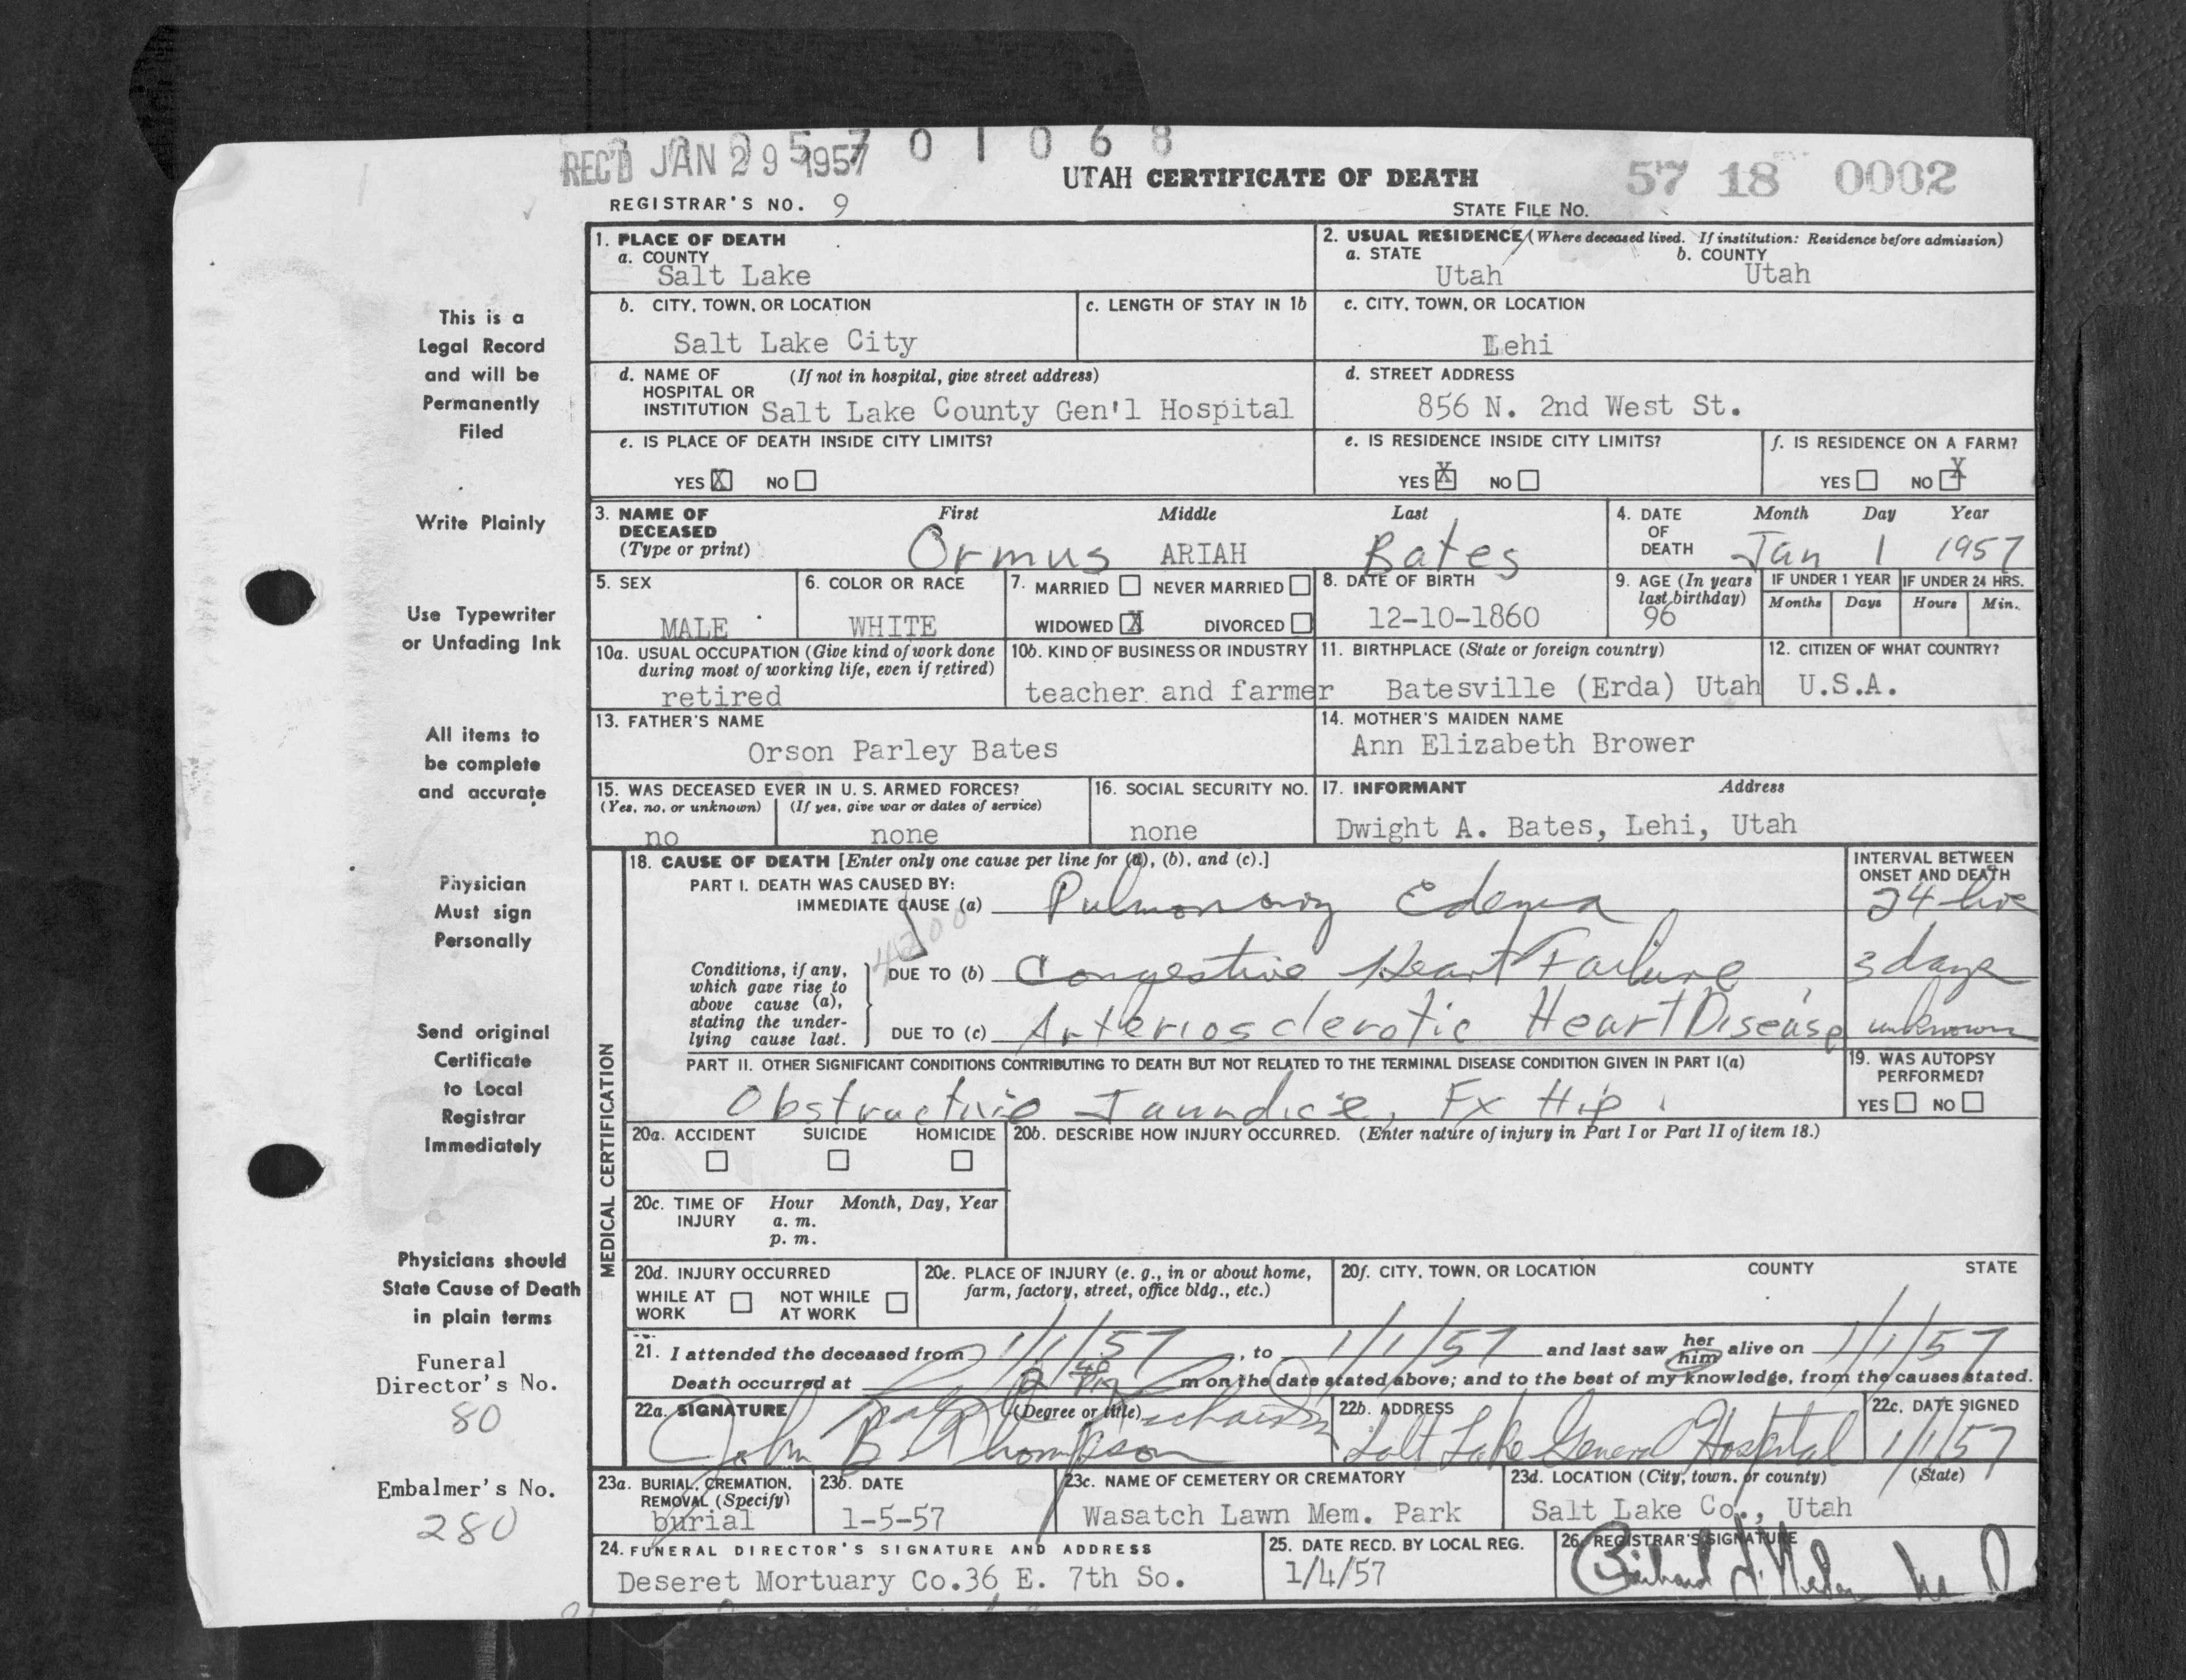 REC'D JAN 29 1957 0 1 0 6 8
UTAH CERTIFICATE OF DEATH
57 18 0002
REGISTRAR'S NO. 9
STATE FILE NO.
1. PLACE OF DEATH
a. COUNTY
Salt Lake
2. USUAL RESIDENCE (Where deceased lived. If institution: Residence before admission)
a. STATE b. COUNTY
Utah Utah
b. CITY, TOWN, OR LOCATION
Salt Lake City
c. LENGTH OF STAY IN 1b
c. CITY, TOWN, OR LOCATION
Lehi
d. NAME OF (If not in hospital, give street address)
HOSPITAL OR
INSTITUTION Salt Lake County Gen'l Hospital
d. STREET ADDRESS
856 N. 2nd West St.
e. IS PLACE OF DEATH INSIDE CITY LIMITS?
YES X NO
e. IS RESIDENCE INSIDE CITY LIMITS?
YES X NO
f. IS RESIDENCE ON A FARM?
YES NO X
3. NAME OF DECEASED (Type or print)
First Middle Last
Ormus ARIAH Bates
4. DATE OF DEATH
Month Day Year
Jan 1 1957
5. SEX
MALE
6. COLOR OR RACE
WHITE
7. MARRIED NEVER MARRIED
WIDOWED X DIVORCED
8. DATE OF BIRTH
12-10-1860
9. AGE (In years last birthday)
96
IF UNDER 1 YEAR
Months Days
IF UNDER 24 HRS.
Hours Min.
10a. USUAL OCCUPATION (Give kind of work done
during most of working life, even if retired)
retired
10b. KIND OF BUSINESS OR INDUSTRY
teacher and farmer
11. BIRTHPLACE (State or foreign country)
Batesville (Erda) Utah
12. CITIZEN OF WHAT COUNTRY?
U.S.A.
13. FATHER'S NAME
Orson Parley Bates
14. MOTHER'S MAIDEN NAME
Ann Elizabeth Brower
15. WAS DECEASED EVER IN U. S. ARMED FORCES?
(Yes, no, or unknown) (If yes, give war or dates of service)
no none
16. SOCIAL SECURITY NO.
none
17. INFORMANT Address
Dwight A. Bates, Lehi, Utah
MEDICAL CERTIFICATION
18. CAUSE OF DEATH [Enter only one cause per line for (a), (b), and (c).]
INTERVAL BETWEEN
ONSET AND DEATH
PART I. DEATH WAS CAUSED BY:
IMMEDIATE CAUSE (a) Pulmonary Edema 24 hrs
4200
Conditions, if any,
which gave rise to
above cause (a),
stating the under-
lying cause last.
DUE TO (b) Congestive Heart Failure 3 days
DUE TO (c) Arteriosclerotic Heart Disease unknown
PART II. OTHER SIGNIFICANT CONDITIONS CONTRIBUTING TO DEATH BUT NOT RELATED TO THE TERMINAL DISEASE CONDITION GIVEN IN PART I(a)
Obstructive Jaundice, Fx Hip
19. WAS AUTOPSY
PERFORMED?
YES NO
20a. ACCIDENT SUICIDE HOMICIDE
20b. DESCRIBE HOW INJURY OCCURRED. (Enter nature of injury in Part I or Part II of item 18.)
20c. TIME OF INJURY Hour Month, Day, Year
a. m.
p. m.
20d. INJURY OCCURRED
WHILE AT WORK NOT WHILE AT WORK
20e. PLACE OF INJURY (e. g., in or about home,
farm, factory, street, office bldg., etc.)
20f. CITY, TOWN, OR LOCATION COUNTY STATE
21. I attended the deceased from 1/1/57, to 1/1/57 and last saw her him alive on 1/1/57
Death occurred at 2 40 P m on the date stated above; and to the best of my knowledge, from the causes stated.
22a. SIGNATURE (Degree or title)
John B. Thompson
22b. ADDRESS
Salt Lake General Hospital
22c. DATE SIGNED
1/1/57
23a. BURIAL, CREMATION,
REMOVAL (Specify)
burial
23b. DATE
1-5-57
23c. NAME OF CEMETERY OR CREMATORY
Wasatch Lawn Mem. Park
23d. LOCATION (City, town, or county) (State)
Salt Lake Co., Utah
24. FUNERAL DIRECTOR'S SIGNATURE AND ADDRESS
Deseret Mortuary Co. 36 E. 7th So.
25. DATE RECD. BY LOCAL REG.
1/4/57
26. REGISTRAR'S SIGNATURE
This is a
Legal Record
and will be
Permanently
Filed
Write Plainly
Use Typewriter
or Unfading Ink
All items to
be complete
and accurate
Physician
Must sign
Personally
Send original
Certificate
to Local
Registrar
Immediately
Physicians should
State Cause of Death
in plain terms
Funeral
Director's No.
80
Embalmer's No.
280